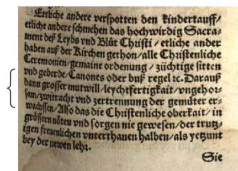 Etliche andere verspotten den Kindertauff/
etliche andere schmehen das hochwirdig Sacra-
ment deß Leybs vnd Blůt Christi/ etliche ander
haben auff der Kirchen gethon/ alle Christenliche
Ceremonien/ gemaine ordenung/ züchtige sitten
vnd geberde/ Canones oder bůß regel ꝛc. Darauß
dann grosser můtwill/ leychtfertigkait/ vngehor-
sam/ zwitracht vnd zertrennung der gemüter er-
wachssen/ Also das die Christenliche oberkait/ in
grössern nöten vnd sorgen nie gewesen/ der trutz-
igen freuenlichen vnterthanen halben/ als yetzunt
bey der newen lehr.
Sie